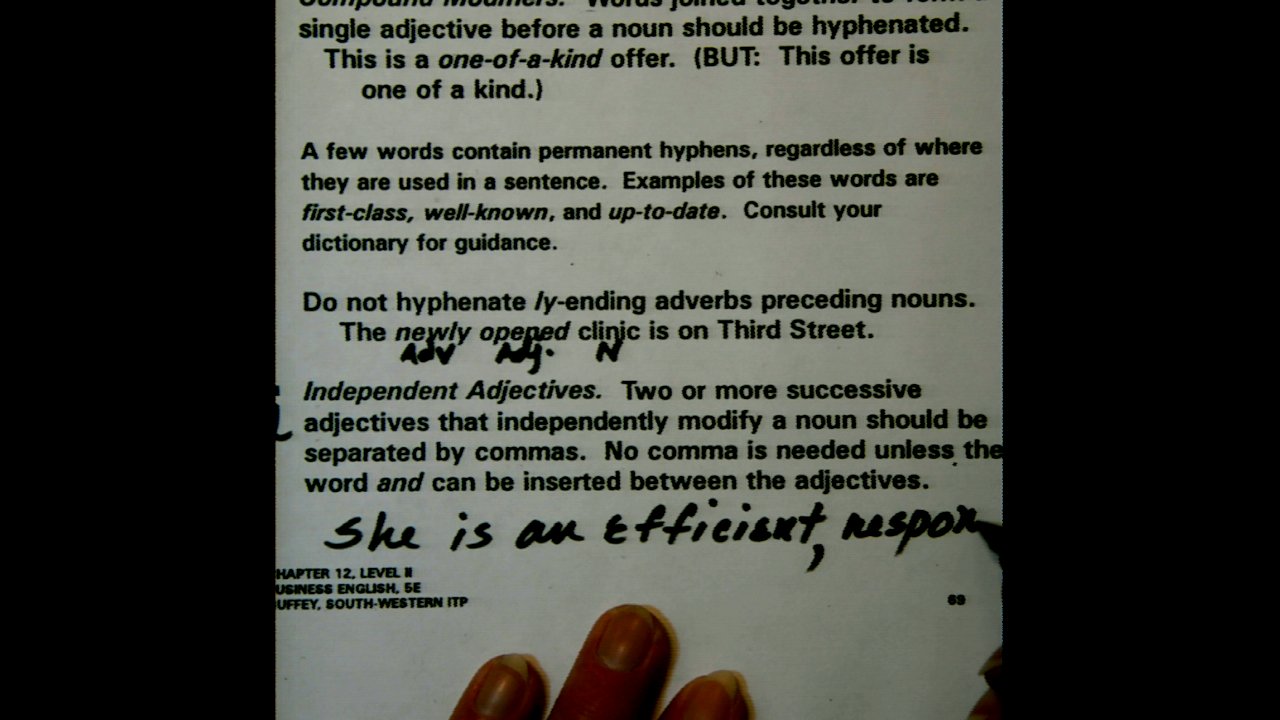 Compound Modifiers. Words joined together to form a
single adjective before a noun should be hyphenated.
This is a one-of-a-kind offer. (BUT: This offer is
one of a kind.)
A few words contain permanent hyphens, regardless of where
they are used in a sentence. Examples of these words are
first-class, well-known, and up-to-date. Consult your
dictionary for guidance.
Do not hyphenate ly-ending adverbs preceding nouns.
The newly opened clinic is on Third Street.
Adv Adj. N
Independent Adjectives. Two or more successive
adjectives that independently modify a noun should be
separated by commas. No comma is needed unless the
word and can be inserted between the adjectives.
She is an efficient, respon
HAPTER 12, LEVEL II
USINESS ENGLISH, 5E
UFFEY, SOUTH-WESTERN ITP
69